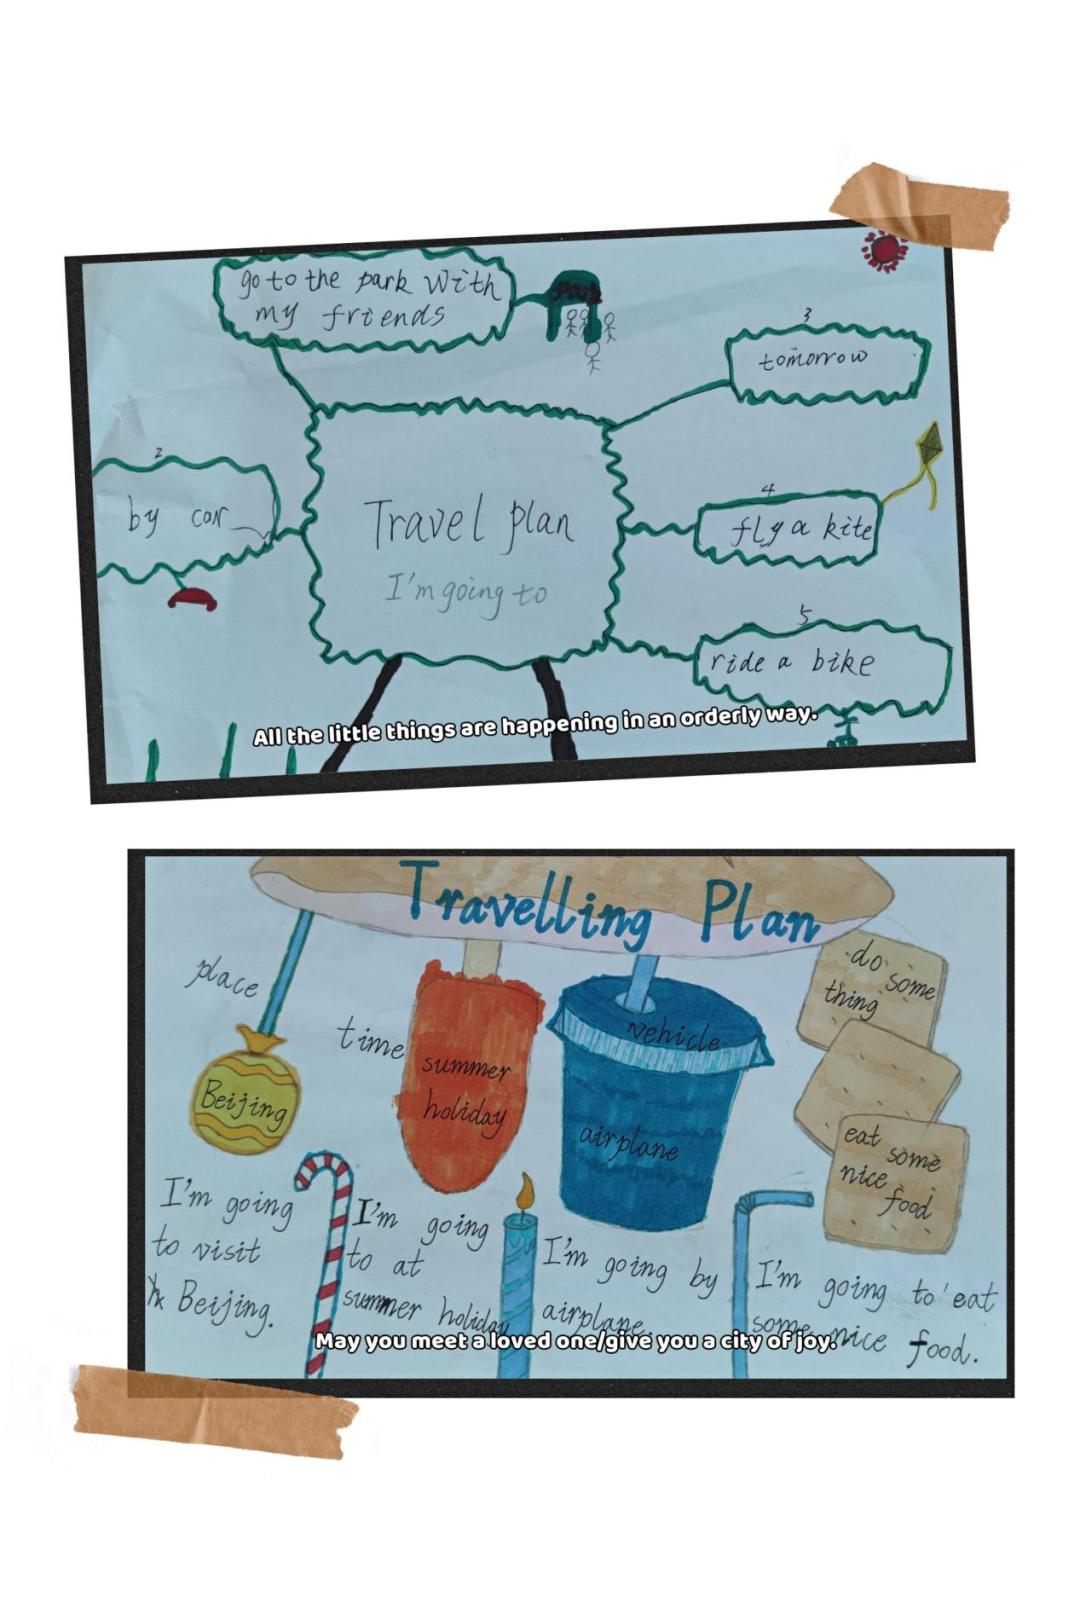 go to the park with
my friends
park
3
tomorrow
2
by car
4
fly a kite
Travel plan
I'm going to
5
ride a bike
All the little things are happening in an orderly way.
Travelling Plan
place
Beijing
time
summer
holiday
vehicle
airplane
do some
thing
eat some
nice
food
I'm going
to visit
Beijing.
I'm going
to at
summer holiday
I'm going by
airplane
I'm going to eat
some nice food.
May you meet a loved one/give you a city of joy.